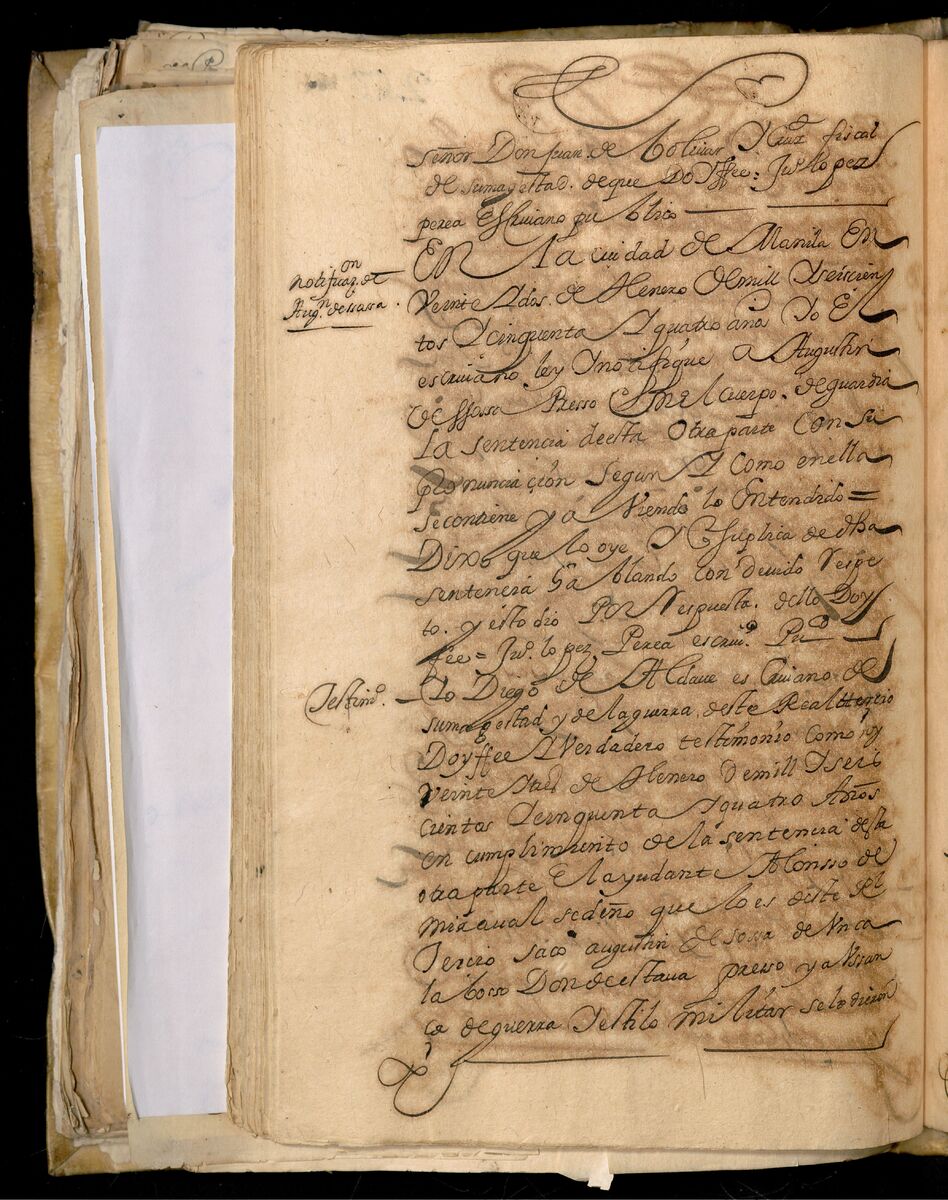 señor Don Juan. de bolivar Y Cruz fiscal
de sumagestad. de que Do Yffee = Juº. lopez
perea Escriuano publico
EN la ciudad de Manila En
Notificazon. de
Augn. de sossa.
Veinte Ydos. de Henero Demill Yseiscien
tos Ycinquenta Yquatro años Yo El
escriuano ley Ynotifique a Augustin
de ssossa Presso En el cuerpo. de guardia
La sentencia desta Otra parte Con su
pronunciaçion segun Y como en ella
se contiene y a Viendo lo Entendido =
Dixo que lo oye Y Suplica de dha
sentencia hablando con deuido Respe
to. y esto dio Por Respuesta. dello Doy
fee = Juº. lopez Perea escriuº. Puco
Testimº.
Yo Diego de Aldaue escriuano de
sumagestad y de la guerra deste Real tercio
Doyffee Y Verdadero testimonio Como oy
Veinte Ytres de Henero Demill Yseis
cientos Ycinquenta Yquatro Años
en cumplimiento de la sentencia desta
otra parte El ayudante Alonsso de
mixaual sedeño que lo es deste Rl
Tercio saco augustin de sossa de Vn ca
laboso Donde estaua presso y a Vssan
ça de guerra Yestilo militar se le dieron